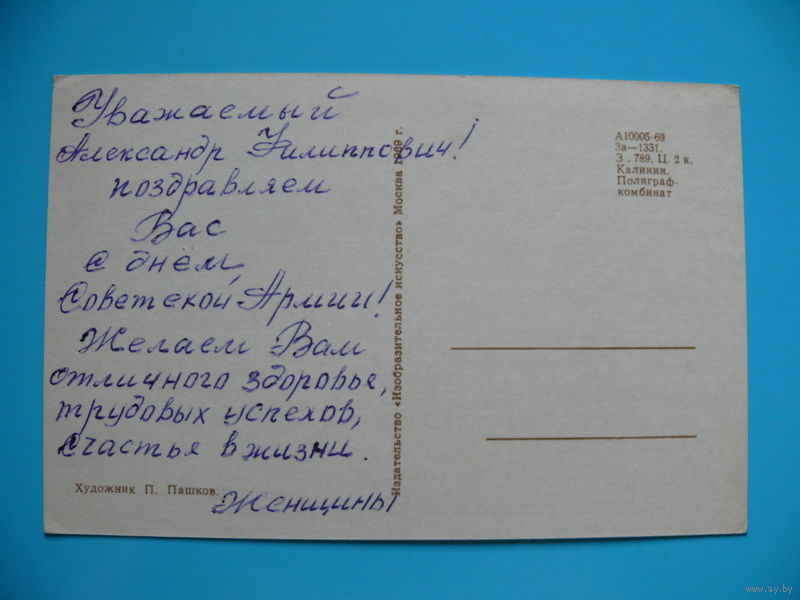 Уважаемый
Александр Филиппович!
поздравляем
Вас
с днём
Советской Армии!
Желаем Вам
отличного здоровья,
трудовых успехов,
счастья в жизни.
Женщины
Художник П. Пашков.
Издательство «Изобразительное искусство» Москва 1969 г.
А10005-69
За—1331.
З. 789. Ц. 2 к.
Калинин.
Полиграф-
комбинат
www.ay.by